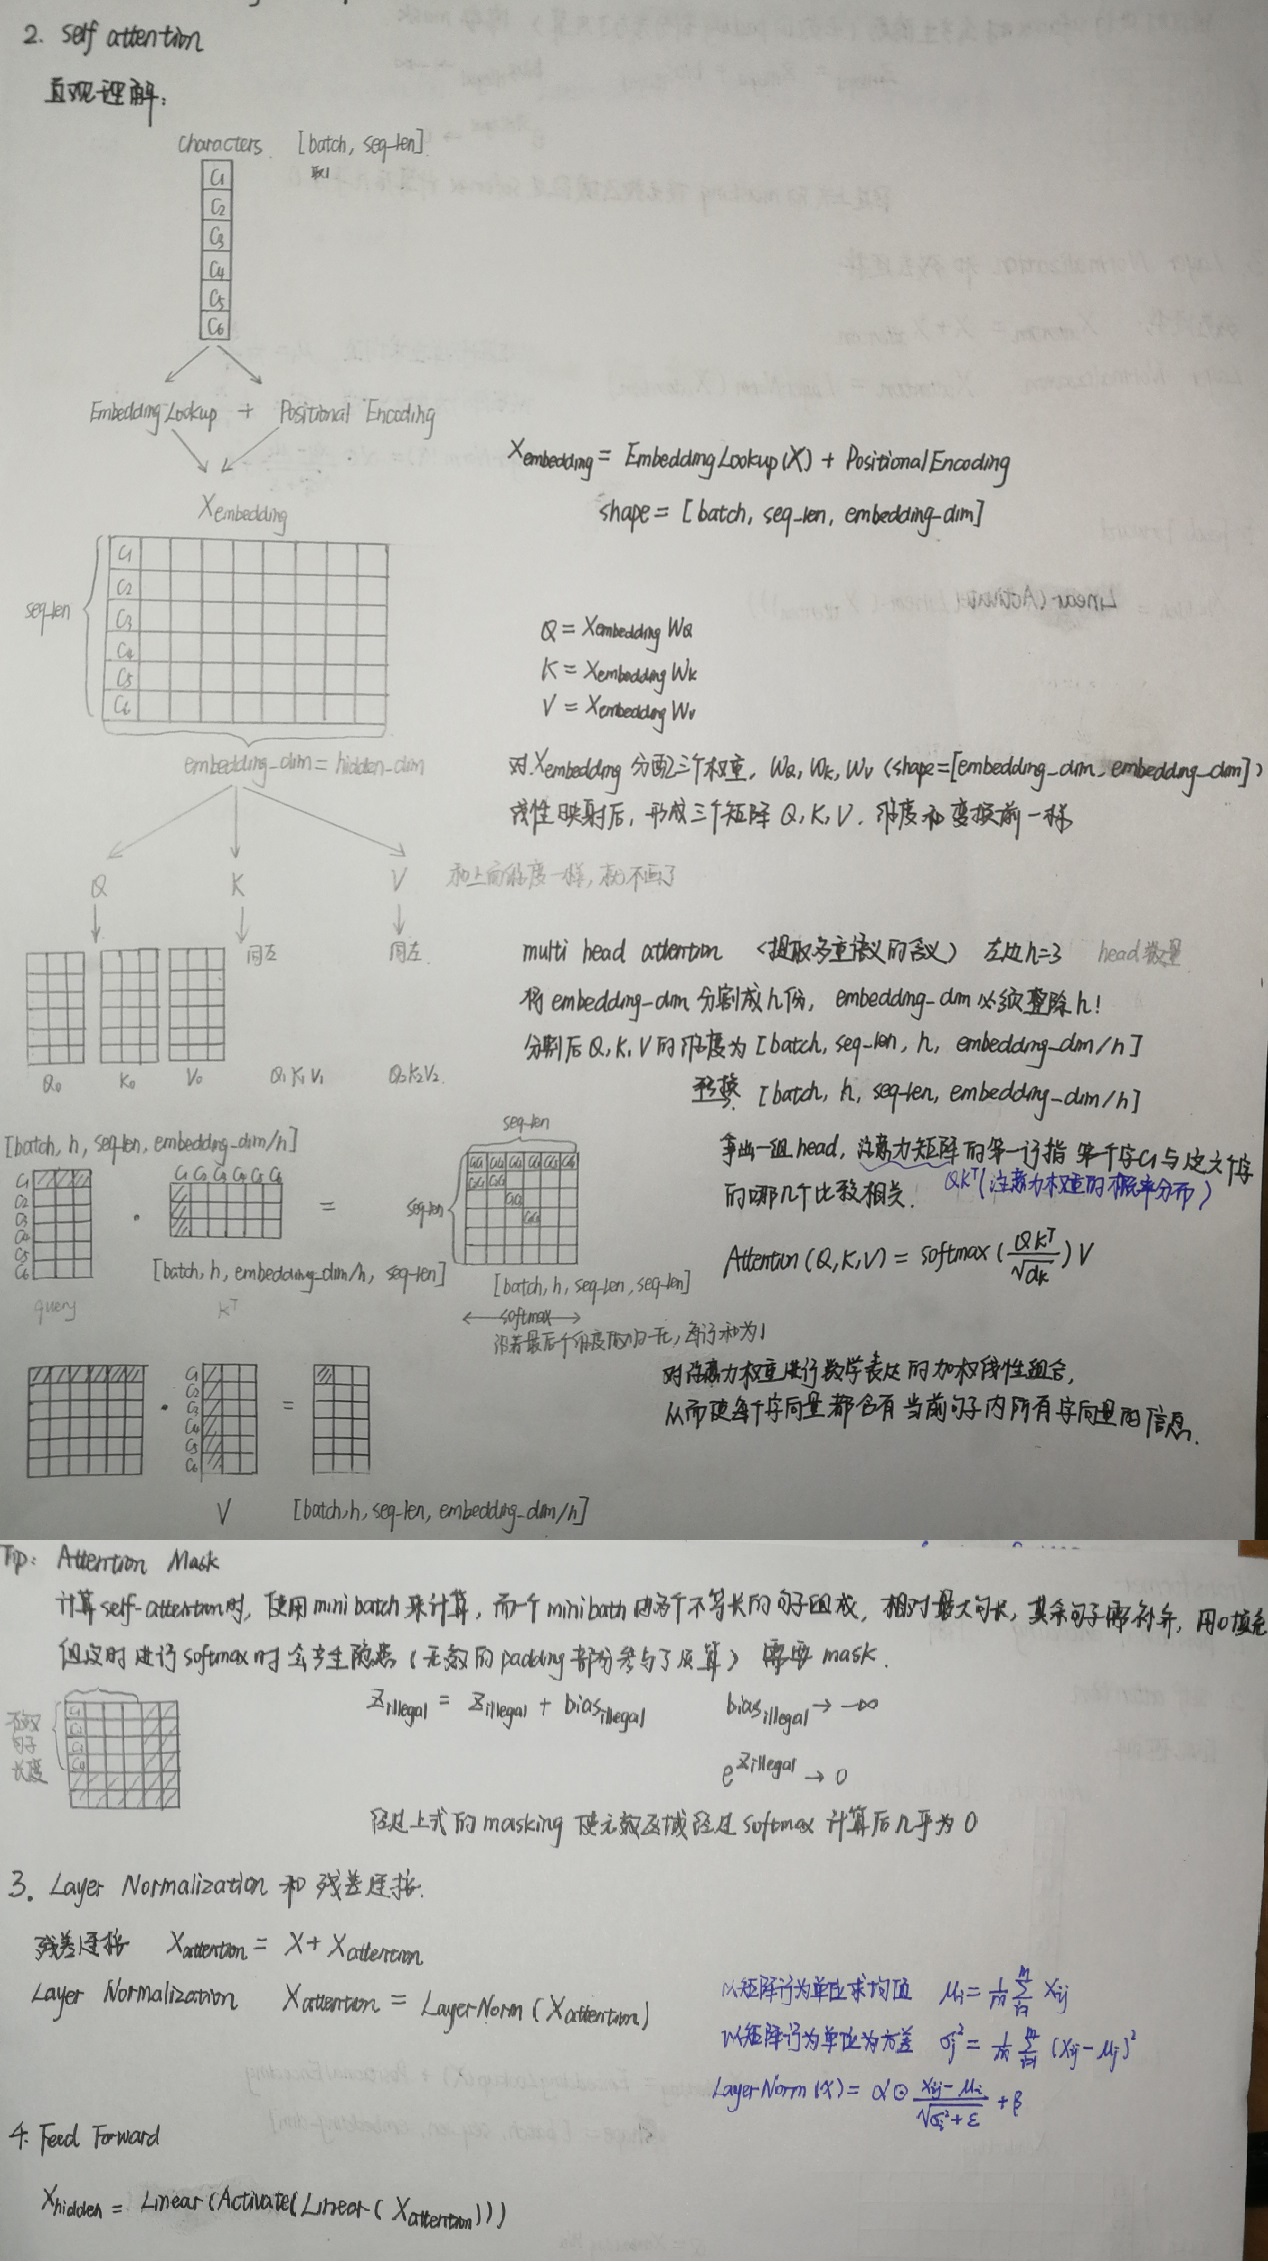 2. self attention
直观理解:
characters [batch, seq-len]
取1
C1
C2
C3
C4
C5
C6
Embedding Lookup + Positional Encoding
Xembedding
Xembedding = Embedding Lookup(X) + Positional Encoding
shape = [batch, seq-len, embedding-dim]
seq-len
C1
C2
C3
C4
C5
C6
embedding-dim = hidden-dim
Q = Xembedding WQ
K = Xembedding WK
V = Xembedding WV
对Xembedding 分配三个权重, WQ, WK, WV (shape=[embedding-dim, embedding-dim])
线性映射后, 形成三个矩阵 Q, K, V. 维度和变换前一样
Q K V 和上面维度一样, 就不画了
同左 同左.
Q0 K0 V0 Q1 K1 V1 Q2 K2 V2.
multi head attention (提取多重语义的含义) 左边h=3 head数量
将 embedding-dim 分割成h份, embedding-dm 必须整除h!
分割后 Q, K, V 的维度为 [batch, seq-len, h, embedding-dim/h]
转换 [batch, h, seq-len, embedding-dim/h]
[batch, h, seq-len, embedding-dim/h]
C1
C2
C3
C4
C5
C6
query
·
C1 C2 C3 C4 C5 C6
[batch, h, embedding-dim/h, seq-len]
KT
=
seq-len
seq-len
[batch, h, seq-len, seq-len]
softmax
沿着最后个维度做归一化, 每行和为1
拿出一组head, 注意力矩阵的第一行指 第一个字C1与这六个字
的哪几个比较相关.
QKT (注意力权重的概率分布)
Attention (Q, K, V) = softmax (QKT/√dk) V
·
C1
C2
C3
C4
C5
C6
=
V [batch, h, seq-len, embedding-dim/h]
对注意力权重进行数学表达的加权线性组合,
从而使每个字向量都含有当前句子内所有字向量的信息.
Tip: Attention Mask
计算self-attention时, 使用 mini batch 来计算, 而一个 mini bath 由多个不等长的句子组成, 相对最大句长, 其余句子需补齐, 用0填充
但这时进行 softmax 时会产生隐患 (无效的 padding 部分参与了运算) 需要 mask.
有效
句子
长度
C1
C2
C3
C4
Zillegal = Zillegal + biasillegal biasillegal → -∞
eZillegal → 0
经过上式的 masking 使无效区域经过 softmax 计算后几乎为 0
3. Layer Normalization 和 残差连接.
残差连接 Xattention = X + Xattention
Layer Normalization Xattention = LayerNorm (Xattention)
以矩阵行为单位求均值 μi = 1/m Σ Xij
以矩阵行为单位为方差 σj2 = 1/m Σ (Xij - μj)2
LayerNorm (x) = α ⊙ (Xij - μi)/√(σi2 + ε) + β
4. Feed Forward
Xhidden = Linear (Activate( Linear ( Xattention)))